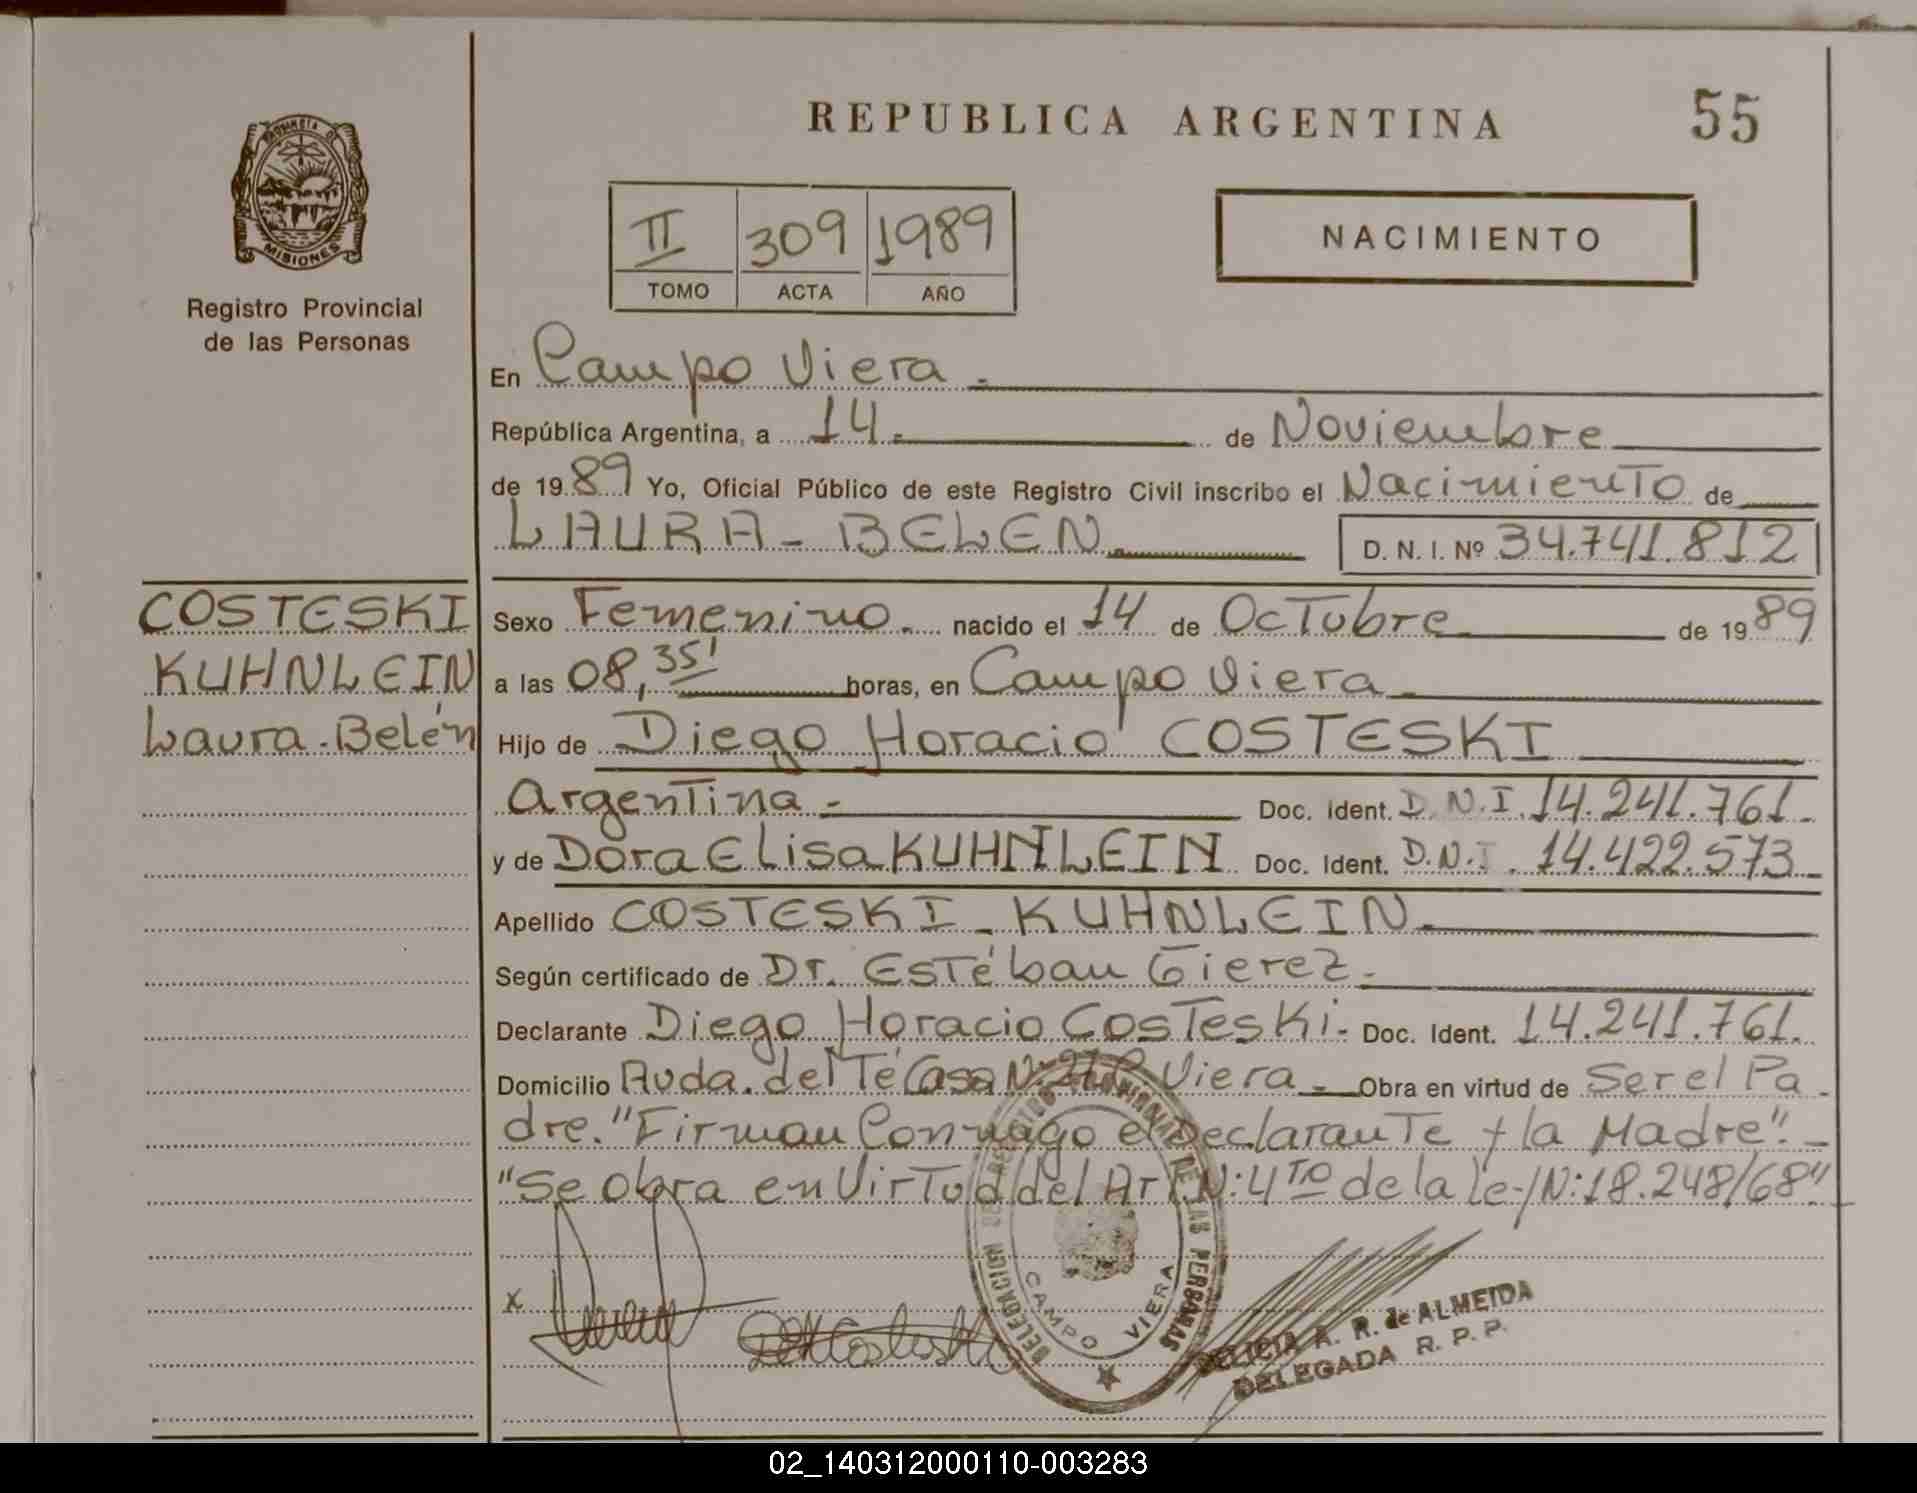 REPUBLICA ARGENTINA
55
PROVINCIA DE
MISIONES
Registro Provincial
de las Personas
II 309 1989
TOMO ACTA AÑO
NACIMIENTO
En Campo Viera.-
República Argentina, a 14.- de Noviembre
de 1989 Yo, Oficial Público de este Registro Civil inscribo el Nacimiento de
LAURA - BELEN D. N. I. Nº 34.741.812
COSTESKI
KUHNLEIN
Laura Belén
Sexo Femenino. nacido el 14 de Octubre de 1989
a las 08,35' horas, en Campo Viera
Hijo de Diego Horacio COSTESKI
Argentina.- Doc. Ident. D.N.I. 14.241.761.-
y de Dora Elisa KUHNLEIN Doc. Ident. D.N.I. 14.422.573
Apellido COSTESKI - KUHNLEIN.
Según certificado de Dr. Estéban Gierez.-
Declarante Diego Horacio Costeski.- Doc. Ident. 14.241.761.
Domicilio Avda. del Té Casa Viera.- Obra en virtud de Ser el Pa-
dre. "Firman Conmigo el Declarante y la Madre".-
"Se obra en Virtud del Art. N: 4to de la ley N: 18.248/68"
x
DELEGACION DEL REGISTRO PROVINCIAL DE LAS PERSONAS
CAMPO VIERA
DELICIA A. R. de ALMEIDA
DELEGADA R. P. P.
02_140312000110-003283